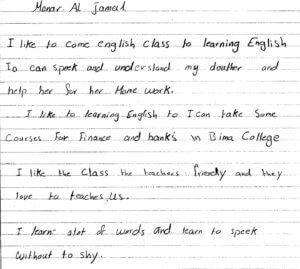 Manar Al Jamail
I like to come english class to learning English
To can speek and understand my doulher and
help her for her Home work.
I like to learning English to I can take Some
Courses For Finance and bank's in Bima College
I like the Class the teachers frinedly and they
love to teaches, us.
I learn alot of words and learn to speek
without to shy.